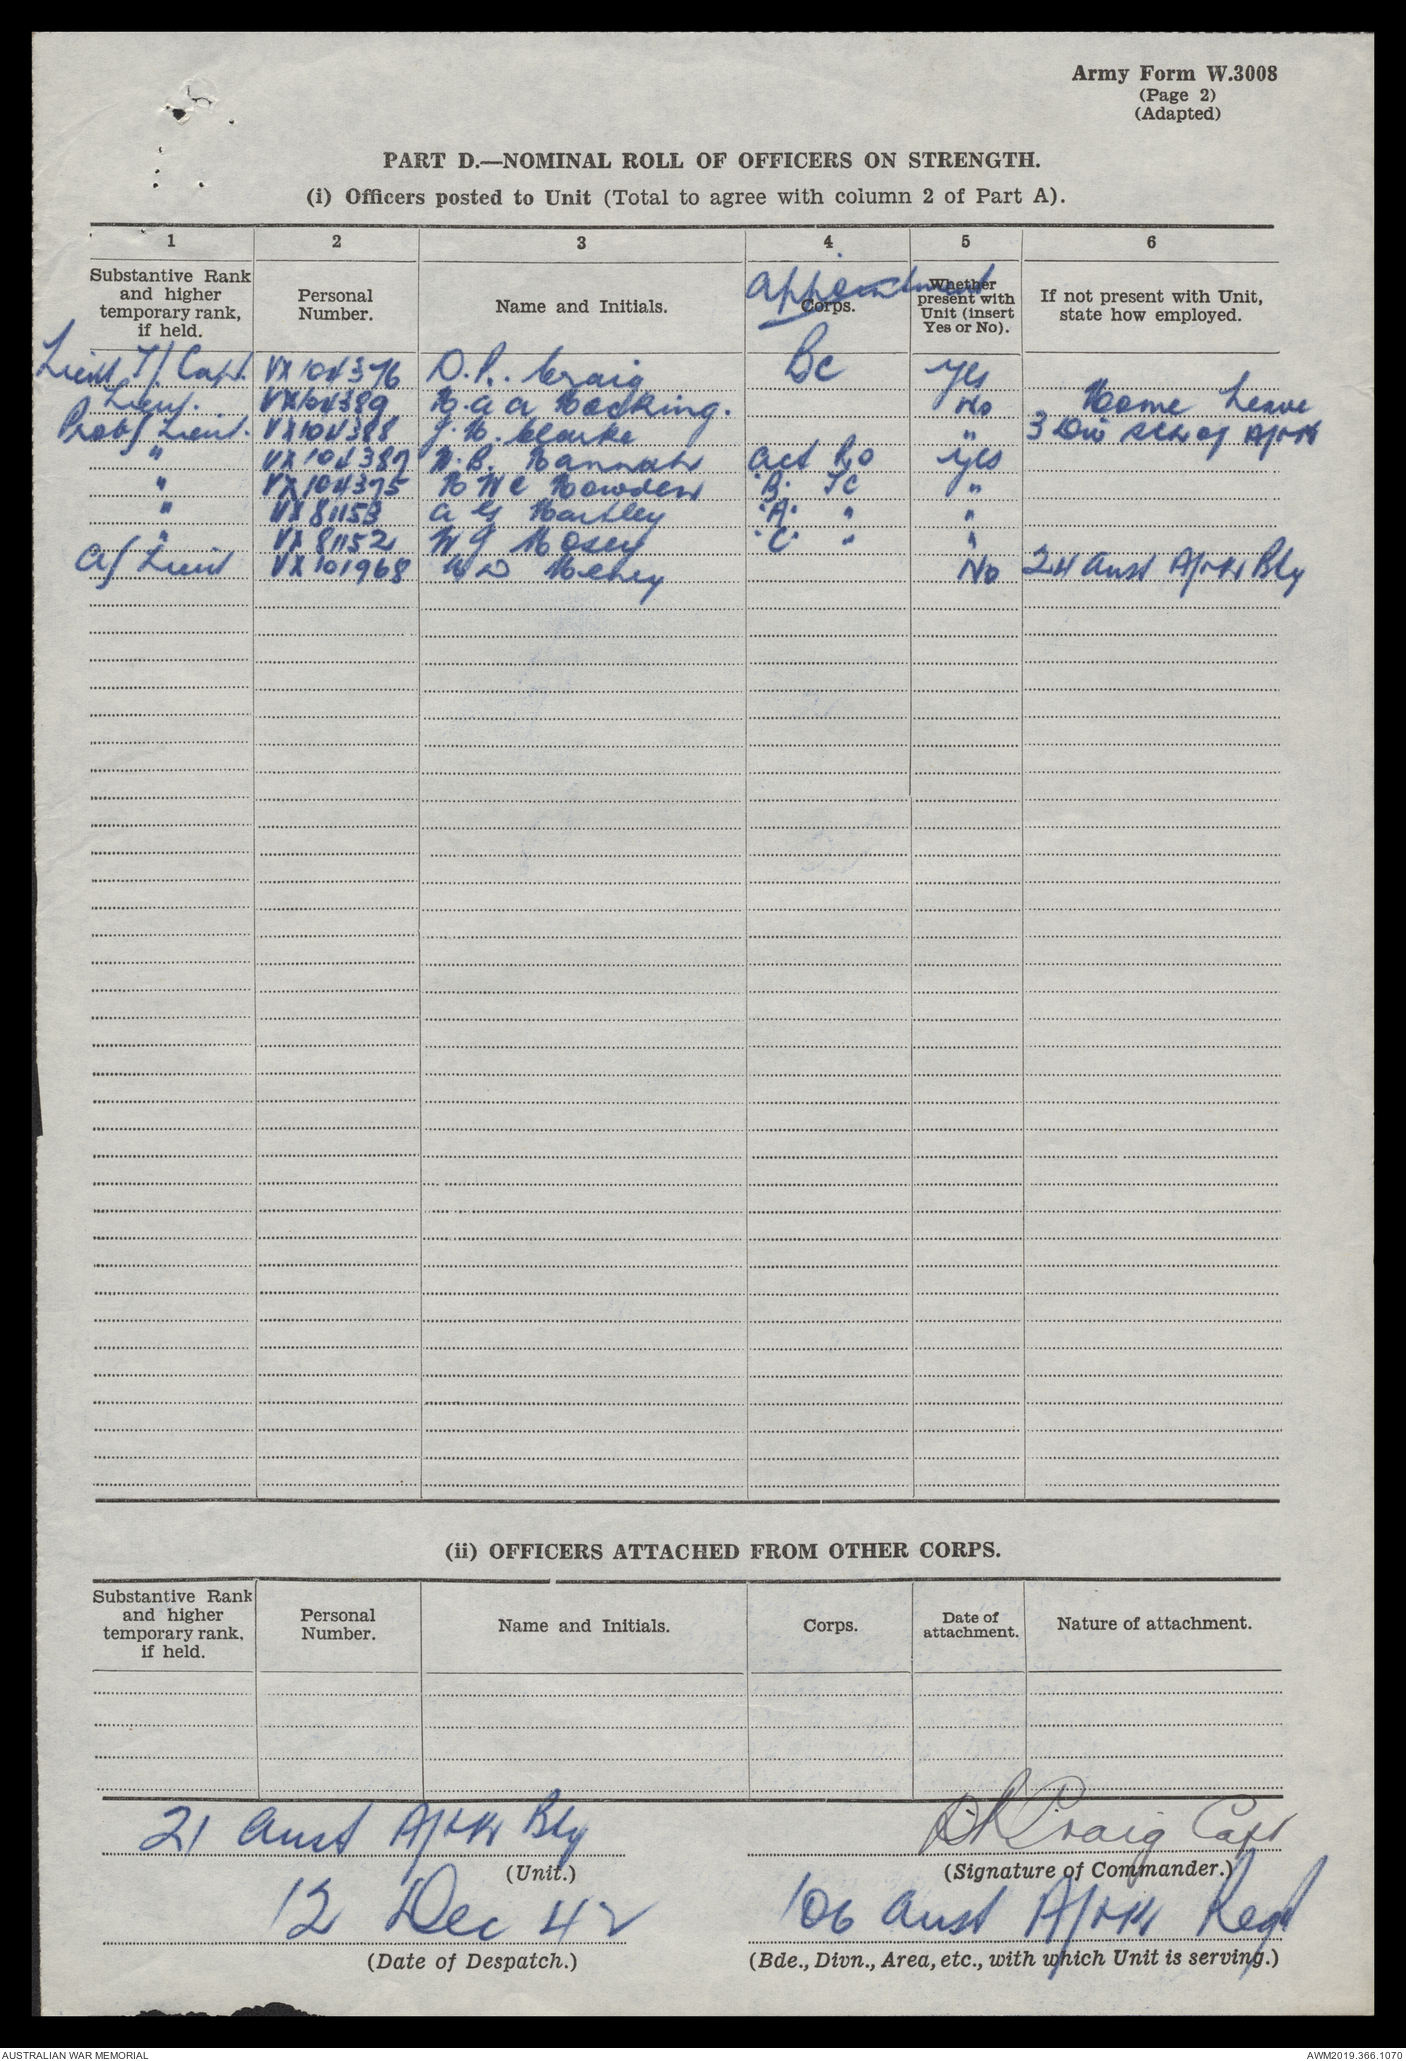 Army Form W.3008
(Page 2)
(Adapted)
PART D.—NOMINAL ROLL OF OFFICERS ON STRENGTH.
(i) Officers posted to Unit (Total to agree with column 2 of Part A).
1 2 3 4 5 6
Substantive Rank and higher temporary rank, if held.
Personal Number.
Name and Initials.
Appointment
Corps.
Whether present with Unit (insert Yes or No).
If not present with Unit, state how employed.
Lieut T/ Capt. VX104376 D.R. Craig BC Yes
Lieut. VX104389 H.A.A Hocking. No Home Leave
Prob/ Lieut. VX104388 J.H. Clarke " 3 Div Sch of A/Tk
" VX104387 H.B. Hannah Act R,O Yes
" VX104375 H W C Howden "B" TC "
" VX81153 A G Hartley "A" " "
" VX81152 W G Hosey "C" " "
A/ Lieut VX101968 No 24 Aust A/Tk Bty
(ii) OFFICERS ATTACHED FROM OTHER CORPS.
Substantive Rank and higher temporary rank, if held.
Personal Number.
Name and Initials.
Corps.
Date of attachment.
Nature of attachment.
21 Aust A/Tk Bty
(Unit.)
DRCraig Capt
(Signature of Commander.)
12 Dec 42
(Date of Despatch.)
106 Aust A/Tk Regt
(Bde., Divn., Area, etc., with which Unit is serving.)
AUSTRALIAN WAR MEMORIAL
AWM2019.366.1070